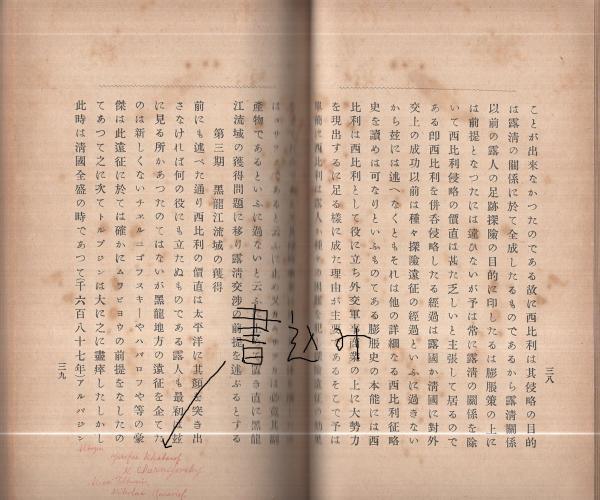 ことが出来なかつたのである故に西比利は其侵略の目的
は露清の關係に於て全成したるものであるから露清關係
以前の露人の足跡探險の目的に印したるは膨脹策の上に
は前提となつたには違ひないが予は常に露清の關係を除
いて西比利侵略の價直は甚た乏しいと主張して居るので
ある即西比利を併呑侵略したる經過は露國か清國に對外
交上の成功以前は種々探險遠征の經過といふに過きない
から玆には述へなくともそれは他の詳細なる西比利征略
史を讀めは可なりといふものである膨脹史の本能には西
比利は西比利として役に立ち外交軍事商業の上に大勢力
を現出するに足る樣に成た理由が主要であるそこで予は
三八
産物であるといふに過ないと云ふ
江流域の獲得問題に移り露清交渉の前提を述ぶるとする
第三期 黑龍江流域の獲得
前にも述べた通り西比利の價直は太平洋に其顏を突き出
さなければ何の役にも立たぬものである露人も最初は玆
に見る所かあつたのてはないが黑龍地方の遠征を企てた
のは新しくないチエルニゴフスキーやハバロフや等の豪
傑は此遠征に於ては確かにムラビヨウの前提をなしたの
てあつて之に次てトルブジンは大に之に盡瘁したしかし
此時は清國全盛の時であつて(千六百八十七年)アルバジン
三九
書込み